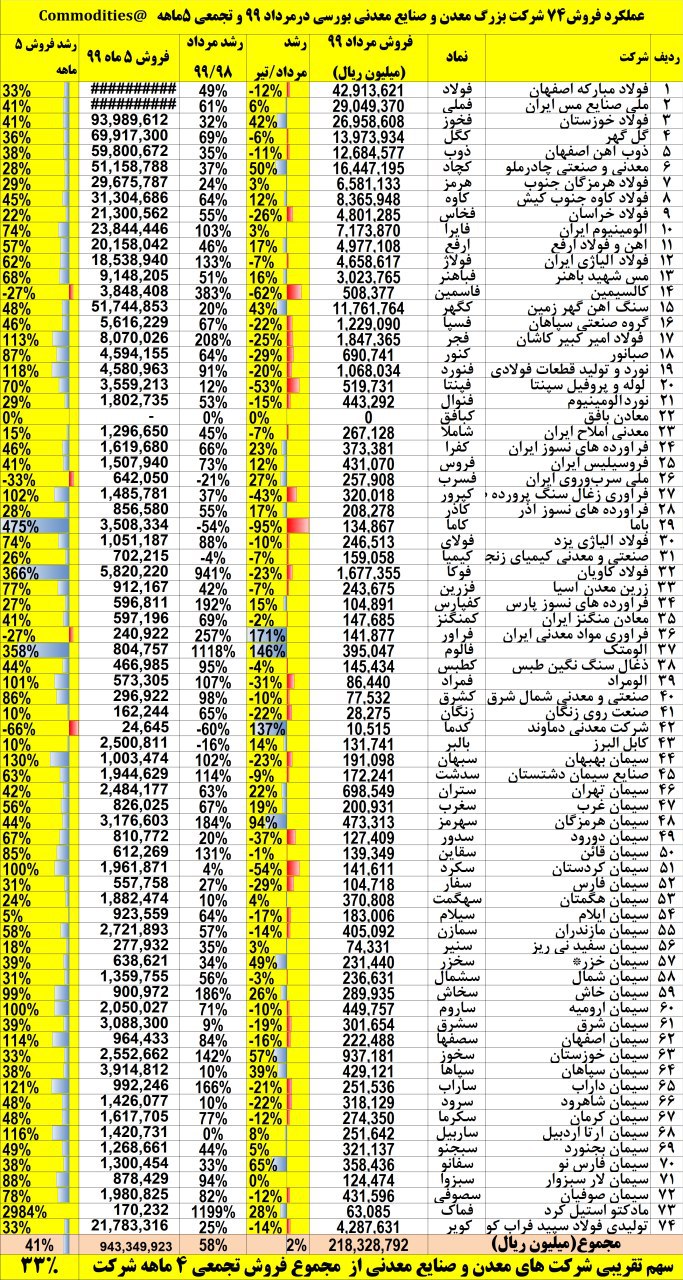 عملکرد فروش ۷۴ شرکت بزرگ معدن و صنایع معدنی بورسی درمرداد ۹۹ و تجمعی ۵ماهه @Commodities
ردیف شرکت نماد فروش مرداد ۹۹ (میلیون ریال) رشد مرداد/تیر رشد مرداد ۹۹/۹۸ فروش ۵ ماه ۹۹ رشد فروش ۵ ماهه
۱ فولاد مبارکه اصفهان فولاد 42,913,621 -12% 49% ########## 33%
۲ ملی صنایع مس ایران فملی 29,049,370 6% 61% ########## 41%
۳ فولاد خوزستان فخوز 26,958,608 42% 32% 93,989,612 41%
۴ گل گهر کگل 13,973,934 -6% 69% 69,917,300 36%
۵ ذوب آهن اصفهان ذوب 12,684,577 -11% 35% 59,800,672 38%
۶ معدنی و صنعتی چادرملو کچاد 16,447,195 50% 37% 51,158,788 28%
۷ فولاد هرمزگان جنوب هرمز 6,581,133 3% 24% 29,675,787 29%
۸ فولاد کاوه جنوب کیش کاوه 8,365,948 12% 64% 31,304,686 45%
۹ فولاد خراسان فخاس 4,801,285 -26% 55% 21,300,562 22%
۱۰ الومینیوم ایران فایرا 7,173,870 3% 103% 23,844,446 74%
۱۱ اهن و فولاد ارفع ارفع 4,977,108 17% 46% 20,158,042 57%
۱۲ فولاد الیاژی ایران فولاژ 4,658,617 -7% 133% 18,538,940 62%
۱۳ مس شهید باهنر فباهنر 3,023,765 16% 51% 9,148,205 68%
۱۴ کالسیمین فاسمین 508,377 -62% 383% 3,848,408 -27%
۱۵ سنگ اهن گهر زمین کگهر 11,761,764 43% 20% 51,744,853 48%
۱۶ گروه صنعتی سپاهان فسپا 1,229,090 -22% 67% 5,616,229 46%
۱۷ فولاد امیر کبیر کاشان فجر 1,847,365 -25% 208% 8,070,026 113%
۱۸ صبانور کنور 690,741 -29% 64% 4,594,155 87%
۱۹ نورد و تولید قطعات فولادی فنورد 1,068,034 -20% 91% 4,580,963 118%
۲۰ لوله و پروفیل سپنتا فپنتا 519,731 -53% 12% 3,559,213 70%
۲۱ نورد الومینیوم فنوال 443,292 -15% 53% 1,802,735 29%
۲۲ معادن بافق کبافق 0 0% 0% - 0%
۲۳ معدنی املاح ایران شاملا 267,128 -7% 45% 1,296,650 15%
۲۴ فراورده های نسوز ایران کفرا 373,381 23% 66% 1,619,680 46%
۲۵ فروسیلیس ایران فروس 431,070 12% 73% 1,507,940 41%
۲۶ ملی سرب‌وروی ایران فسرب 257,908 27% -21% 642,050 -33%
۲۷ فراوری زغال سنگ پرورده ط کپرور 320,018 -43% 37% 1,485,781 102%
۲۸ فراورده های نسوز آذر کاذر 208,278 17% 55% 856,580 28%
۲۹ باما کاما 134,867 -95% -54% 3,508,334 475%
۳۰ فولاد الیاژی یزد فولای 246,513 -10% 88% 1,051,187 74%
۳۱ صنعتی و معدنی کیمیای زنج کیمیا 159,058 -7% -4% 702,215 26%
۳۲ فولاد کاویان فوکا 1,677,355 -23% 941% 5,820,220 366%
۳۳ زرین معدن اسیا فزرین 243,675 -7% 42% 912,167 77%
۳۴ فراورده های نسوز پارس کفپارس 104,891 15% 192% 596,811 27%
۳۵ معادن منگنز ایران کمنگنز 147,685 -2% 69% 597,196 41%
۳۶ فراوری مواد معدنی ایران فراور 141,877 171% 257% 240,922 -27%
۳۷ الومتک فالوم 395,047 146% 1118% 804,757 358%
۳۸ ذغال سنگ نگین طبس کطبس 145,434 -4% 95% 466,985 44%
۳۹ الومراد فمراد 86,440 -31% 107% 573,305 101%
۴۰ صنعتی و معدنی شمال شرق کشرق 77,532 -10% 98% 296,922 86%
۴۱ صنعت روی زنگان زنگان 28,275 -22% 65% 162,244 10%
۴۲ شرکت معدنی دماوند کدما 10,515 137% -60% 24,645 -66%
۴۳ کابل البرز بالبر 131,741 14% -16% 2,500,811 10%
۴۴ سیمان بهبهان سبهان 191,098 -23% 102% 1,003,474 130%
۴۵ صنایع سیمان دشتستان سدشت 172,241 -9% 114% 1,944,629 63%
۴۶ سیمان تهران ستران 698,549 22% 63% 2,484,177 42%
۴۷ سیمان غرب سغرب 200,931 19% 67% 826,025 56%
۴۸ سیمان هرمزگان سهرمز 473,313 94% 184% 3,176,603 44%
۴۹ سیمان دورود سدور 127,409 -37% 20% 810,772 67%
۵۰ سیمان قائن سقاین 139,349 -1% 131% 612,269 85%
۵۱ سیمان کردستان سکرد 141,611 -54% 4% 1,961,871 100%
۵۲ سیمان فارس سفار 104,718 -29% 27% 557,758 31%
۵۳ سیمان هگمتان سهگمت 370,808 4% 10% 1,882,474 24%
۵۴ سیمان ایلام سیلام 183,006 -17% 64% 923,559 5%
۵۵ سیمان مازندران سمازن 405,092 -14% 57% 2,721,893 58%
۵۶ سیمان سفید نی ریز سنیر 74,331 3% 35% 277,932 18%
۵۷ سیمان خزر* سخزر 231,440 49% 34% 638,621 39%
۵۸ سیمان شمال سشمال 236,631 -3% 56% 1,359,755 31%
۵۹ سیمان خاش سخاش 289,935 26% 186% 900,972 99%
۶۰ سیمان ارومیه ساروم 449,757 -10% 71% 2,050,027 100%
۶۱ سیمان شرق سشرق 301,654 -19% 9% 3,088,300 39%
۶۲ سیمان اصفهان سصفها 222,488 -16% 84% 964,433 114%
۶۳ سیمان خوزستان سخوز 937,181 57% 142% 2,552,662 33%
۶۴ سیمان سپاهان سپاها 429,121 39% 10% 3,914,812 38%
۶۵ سیمان داراب ساراب 251,536 -21% 166% 992,246 121%
۶۶ سیمان شاهرود سرود 318,129 -22% 10% 1,426,077 48%
۶۷ سیمان کرمان سکرما 274,350 -12% 77% 1,617,705 48%
۶۸ سیمان ارتا اردبیل ساربیل 251,642 8% 0% 1,420,731 116%
۶۹ سیمان بجنورد سبجنو 321,137 5% 44% 1,268,661 49%
۷۰ سیمان فارس نو سفانو 358,436 65% 33% 1,300,454 38%
۷۱ سیمان لار سبزوار سبزوا 124,474 0% 94% 878,429 88%
۷۲ سیمان صوفیان سصوفی 431,596 -12% 82% 1,980,825 78%
۷۳ مادکتو استیل کرد فماک 63,085 28% 1199% 170,232 2984%
۷۴ تولیدی فولاد سپید فراب کو کویر 4,287,631 -14% 25% 21,783,316 33%
مجموع(میلیون ریال) 218,328,792 2% 58% 943,349,923 41%
سهم تقریبی شرکت های معدن و صنایع معدنی از مجموع فروش تجمعی ۴ ماهه شرکت ۳۳%